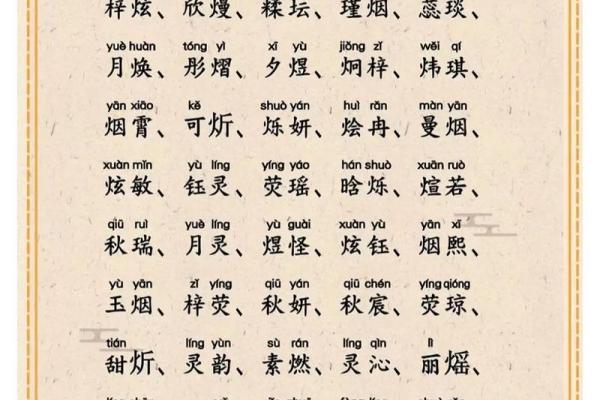 梓炫、欣熳、糅坛、瑾烟、蕊琰、
yuè huàn tóng yì xī yù jiǒng zǐ wěi qí
月焕、彤熠、夕煜、炯梓、炜琪、
yān xiāo kě shuò yán huì rǎn màn yān
烟霄、可炘、烁妍、烩冉、曼烟、
xuàn mǐn yù líng yíng yáo hán shuò xuān ruò
炫敏、钰灵、荧瑶、晗烁、煊若、
qiū ruì yuè líng yù guài xuàn yù yān xī
秋瑞、月灵、煜怪、炫钰、烟熙、
yù yān zǐ yíng qiū yán qiū chén yíng qióng
玉烟、梓荧、秋妍、秋宸、荧琼、
tián líng yùn sù rán líng qìn lì
甜炘、灵韵、素燃、灵沁、丽熎、